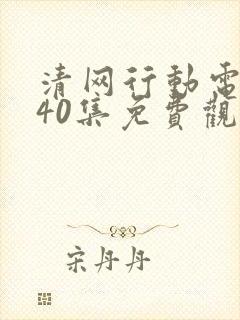 清网行動電
40集免費觀
宋丹丹